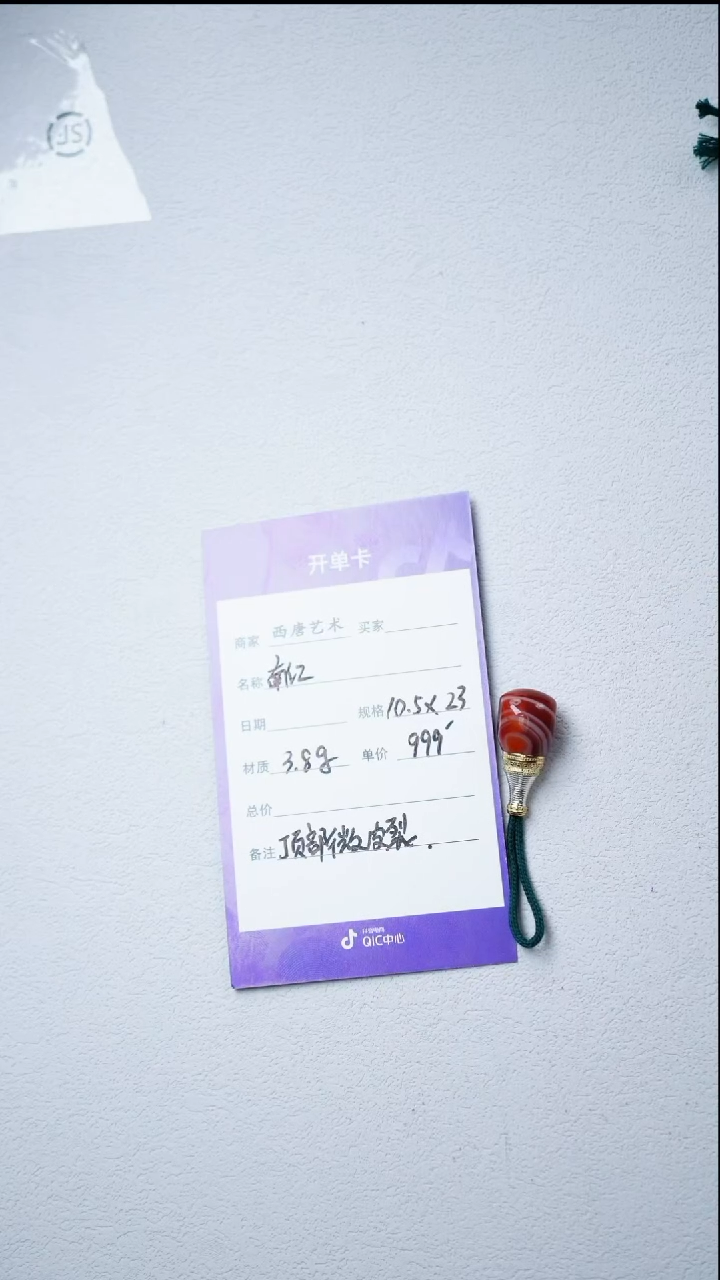 JS
开单卡
商家 西唐艺术 买家
名称 南红
日期 规格 10.5x23
材质 3.8g 单价 999
总价
备注 顶部微皮裂.
抖音电商
QIC中心